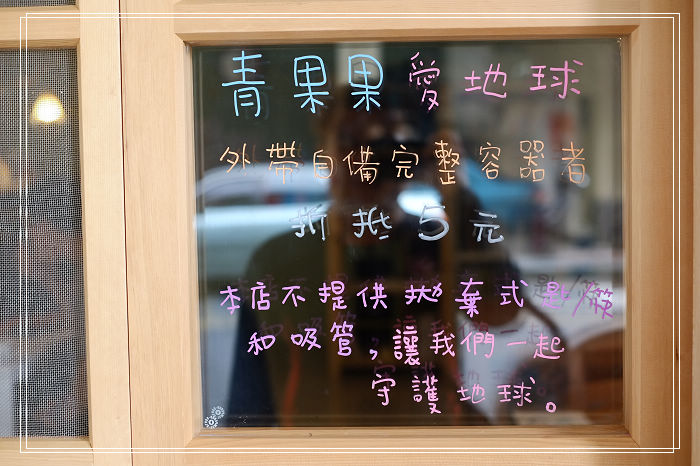 青果果愛地球
外帶自備完整容器者
折抵5元
本店不提供拋棄式匙/筷
和吸管,讓我們一起
守護地球。